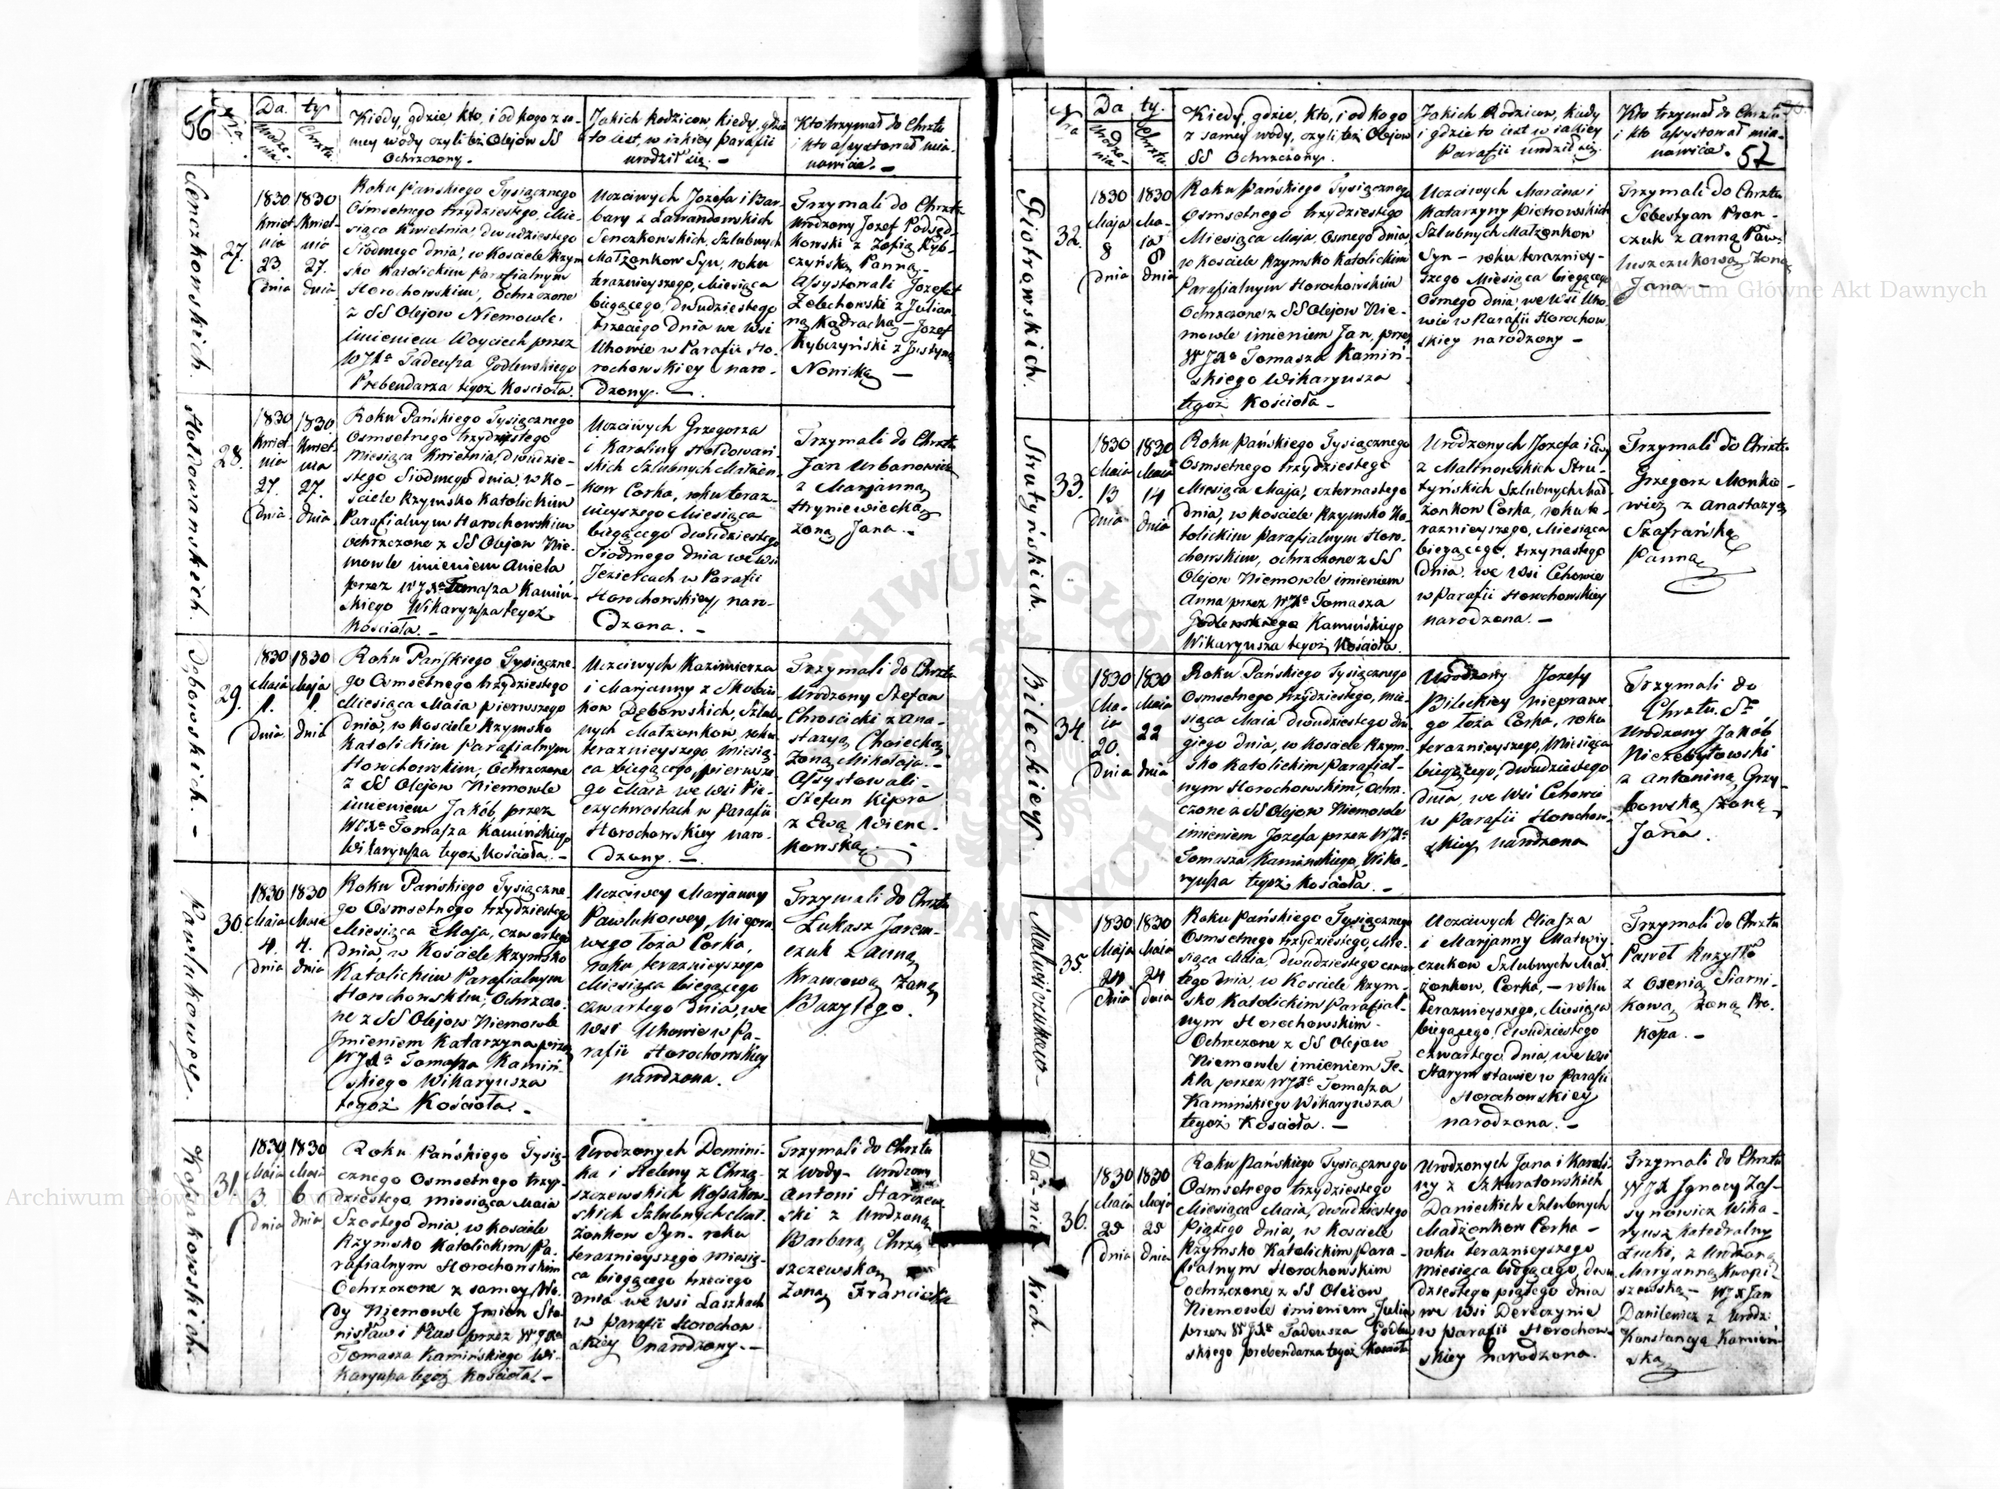 56
Nra.
Da.
ty
Urodze-
nia.
Chrztu.
Kiedy, gdzie, kto, i od kogo z sa-
mey wody czyli też Olejow SS
Ochrzczony.
Jakich Rodzicow, kiedy, gdzie
to iest, w iakiey Parafii
urodził się.
Kto trzymał do Chrztu
i kto assystował mia-
nowicie. -
Senczkowskich.
27.
1830
Kwiet
nia
23.
dnia
1830
Kwiet-
nia
27.
dnia
Roku Pańskiego Tysiącznego
Osmsetnego trzydziestego, Mie-
siąca Kwietnia, dwudziestego
Siódmego dnia, w Kosciele Rzym
sko Katolickim Parafialnym
Horochowskim, Ochrzczone
z SS Olejow Niemowle
imieniem Woyciech przez
WJXa Tadeusza Godlewskiego
Prebendarza tegoż Kościoła.
Uczciwych Jozefa i Bar-
bary z
Senczkowskich, Szlubnych
Małżonkow Syn, roku
teraznieyszego, Miesiąca
biegącego, dwudziestego
trzeciego Dnia we Wsi
Uhowie w Parafii Ho-
rochowskiey naro-
dzony. -
Trzymali do Chrztu
Urodzony Jozef Podsęd-
kowski z Zofią Ryb-
czyńską Panną -
Assystowali Jozefat
Zelechowski z Julian-
ną Kądracką - Jozef
Rybczyński z Justyną
Nowicką -
Hołdowanskich.
28.
1830
Kwiet-
nia
27.
dnia
1830
Kwiet
nia
27.
dnia
Roku Pańskiego Tysiącznego
Osmsetnego trzydziestego
Miesiąca Kwietnia, dwudzie-
stego Siodmego dnia, w Ko-
sciele Rzymsko Katolickim
Parafialnym Horochowskim
ochrzczone z SS Olejow Nie-
mowle imieniem Aniela
przez WJXa Tomasza Kamiń-
skiego Wikaryusza tegoż
Kościoła. -
Uczciwych Grzegorza
i Karoliny Hołdowań-
skich Szlubnych Małżon-
kow Corka, roku teraz-
nieyszego Miesiąca
biegącego dwudziestego
Siodmego dnia we Wsi
Jeziercach w Parafii
Horochowskiey naro-
dzona. -
Trzymali do Chrztu
Jan Urbanowicz
z Marjanną
Hryniewiecką
Zoną Jana. -
Dębowskich. -
29.
1830
Maia
1.
dnia
1830
Maja
1.
dnia
Roku Pańskiego Tysiączne-
go Osmsetnego trzydziestego
Miesiąca Maia pierwszego
dnia, w Kosciele Rzymsko
Katolickim Parafialnym
Horochowskim, Ochrzczone
z SS Olejow Niemowle
imieniem Jakób, przez
WJXa Tomasza Kamińskiego
Wikaryusza tegoż Kościoła. -
Uczciwych Kazimierza
i Marjanny z
kow Dębowskich, Szlub-
nych Małżonkow, roku
teraznieyszego miesią-
ca biegącego, pierwsze-
go Maia we Wsi Pie-
czychwostach w Parafii
Horochowskiey naro-
dzony. -
Trzymali do Chrztu
Urodzony Stefan
Chroscicki z Ana-
stazyą Choiecką
Zoną Mikołaja. -
Assystowali -
Stefan Kipora
z Ewą Wienc-
kowską. -
Pawlukowey.
30.
1830
Maia
4.
dnia
1830
Maia
4.
dnia
Roku Pańskiego Tysiączne
go Osmsetnego trzydziestego
Miesiąca Maja, czwartego
dnia w Kosciele Rzymsko
Katolickim Parafialnym
Horochowskim, Ochrzczo-
ne z SS Olejow Niemowle
Imieniem Katarzyna przez
WJXa Tomasza Kamiń-
skiego Wikaryusza
tegoż Kościoła. -
Uczciwey Marjanny
Pawlukowey, niepra-
wego łoża Corka,
roku teraznieyszego
Miesiąca biegącego
czwartego dnia, we
Wsi Uhowie w Pa-
rafii Horochowskiey
narodzona.
Trzymali do Chrztu
Łukasz Jarem-
czuk z Anną
Krawcową Zoną
Bazylego.
Kossakowskich.
31.
1830
Maia
3.
dnia
1830
Maia
6
dnia
Roku Pańskiego Tysią-
cznego Osmsetnego trzy-
dziestego, miesiąca Maia
Szostego dnia, w Kosciele
Rzymsko Katolickim Pa-
rafialnym Horochowskim
Ochrzczone z samey Wo-
dy Niemowle Imion Sta-
nisław i Pius przez WJXa
Tomasza Kamińskiego Wi-
karyusza tegoż Kościoła. -
Urodzonych Domini-
ka i Heleny z Chrzą-
szczewskich Kossakow-
skich Szlubnych Mał-
żonkow Syn - roku
teraznieyszego miesią-
ca biegącego trzeciego
Dnia we Wsi Laszkach
w Parafii Horochow
skiey narodzony. -
Trzymali do Chrztu
z Wody - Urodzony
Antoni Starzew-
ski z Urodzoną
Barbarą Chrzą
szczewską
Zoną Franciszka
57
Nra
Da
ty.
Urodze-
nia
Chrztu.
Kiedy, gdzie, kto, i od kogo
z samey wody, czyli też Olejow
SS Ochrzczony.
Jakich Rodzicow, kiedy
i gdzie to iest w iakiey
Parafii urodził się.
Kto trzymał do Chrztu
i kto assystował mia-
nowicie.
Piotrowskich.
32.
1830
Maja
8
dnia
1830
Ma-
ia
8
dnia
Roku Pańskiego Tysiącznego
Osmsetnego trzydziestego
Miesiąca Maja, Osmego dnia
w Kosciele Rzymsko Katolickim
Parafialnym Horochowskim
Ochrzczone z SS Olejow Nie-
mowle imieniem Jan, przez
WJXa Tomasza Kamiń-
skiego Wikaryusza
tegoż Kościoła -
Uczciwych Marcina i
Katarzyny Piotrowskich
Szlubnych Małżonkow
Syn - roku teraźniey-
szego Miesiąca biegącego
Osmego dnia, we Wsi Uho-
wie w Parafii Horochow
skiey narodzony -
Trzymali do Chrztu
Sebestyan Pron-
czuk z Anną Paw-
luszczukową Zoną
Jana -
Strutyńskich.
33.
1830
Maia
13
dnia
1830
Maia
14
dnia
Roku Pańskiego Tysiącznego
Osmsetnego trzydziestego
Miesiąca Maja, czternastego
dnia, w Kosciele Rzymsko Ka-
tolickim Parafialnym Horo-
chowskim, ochrzczone z SS
Olejow Niemowle imieniem
Anna przez WJXa Tomasza
Godlewskiego Kamińskiego
Wikaryusza tegoż Kościoła.
Urodzonych Jozefa i Ewy
z Malinowskich Stru-
tyńskich Szlubnych Mał-
żonkow Corka, roku te-
raznieyszego, Miesiąca
biegącego, trzynastego
Dnia, we Wsi Cehowie
w Parafii Horochowskiey
narodzona. -
Trzymali do Chrztu
Grzegorz Monke-
wicz z Anastazyą
Szafrańską
Panną
Bileckiey.
34.
1830
Ma-
ia
20.
dnia
1830
Maia
22
dnia
Roku Pańskiego Tysiącznego
Osmsetnego trzydziestego, mie-
siąca Maia dwudziestego dru
giego dnia, w Kosciele Rzym-
sko Katolickim Parafial-
nym Horochowskim, Ochrz-
czone z SS Olejow Niemowle
imieniem Jozefa przez WJXa
Tomasza Kamińskiego, Wika-
ryusza tegoż Kościoła. -
Urodzoney Jozefy
Bileckiey niepraw-
go łoża Corka, roku
teraznieyszego, Miesiąca
biegącego, dwudziestego
dnia, we Wsi Cehowie
w Parafii Horochow-
skiey narodzona
Trzymali do
Chrztu. Sgo
Urodzony Jakób
Niezabytowski
z Antoniną Grzy-
bowską Zoną
Jana.
Matwiyczukow -
35.
1830
Maja
24
dnia
1830
Maia
24
dnia
Roku Pańskiego Tysiącznego
Osmsetnego trzydziestego, Mie-
siąca Maia, dwudziestego czwar
tego dnia, w Kosciele Rzym-
sko Katolickim Parafial-
nym Horochowskim.
Ochrzczone z SS Olejow
Niemowle imieniem Te-
kla przez WJXa Tomasza
Kamińskiego Wikaryusza
tegoż Kościoła. -
Uczciwych Eliasza
i Marjanny Matwiy-
czukow Szlubnych Mał-
żonkow, Corka, - roku
teraznieyszego, Miesiąca
biegącego, dwudziestego
czwartego dnia, we Wsi
Starym stawie w Parafii
Horochowskiey
narodzona. -
Trzymali do Chrztu
Paweł
z Oxenią
kową Zoną Pro-
kopa. -
Da-nie-kich
36.
1830
Maia
25
dnia
1830
Maja
25
dnia
Roku Pańskiego Tysiącznego
Osmsetnego trzydziestego
Miesiąca Maia, dwudziestego
Piątego dnia, w Kosciele
Rzymsko Katolickim Para-
fialnym Horochowskim
ochrzczone z SS Olejow
Niemowle imieniem Julia
przez WJXa Tadeusza Godlew
skiego prebendarza tegoż Kościoła
Urodzonych Jana i Karoli-
ny z Szkuratowskich
Danieckich Szlubnych
Małżonkow Corka -
roku teraznieyszego
miesiąca biegącego, dwu
dziestego piątego dnia
we Wsi Dereczynie
w Parafii Horochow-
skiey narodzona.
Trzymali do Chrztu
WJX Ignacy Zas-
synowicz Wika-
ryusz Katedralny
Łucki, z Urodzoną
Maryanną Kropi-
szewską - WJX Jan
Danilewicz z Urodz:
Konstancyą Kamień-
ską
Archiwum Główne Akt Dawnych
Archiwum Główne Akt Dawnych
ARCHIWUM GŁÓWNE AKT DAWNYCH